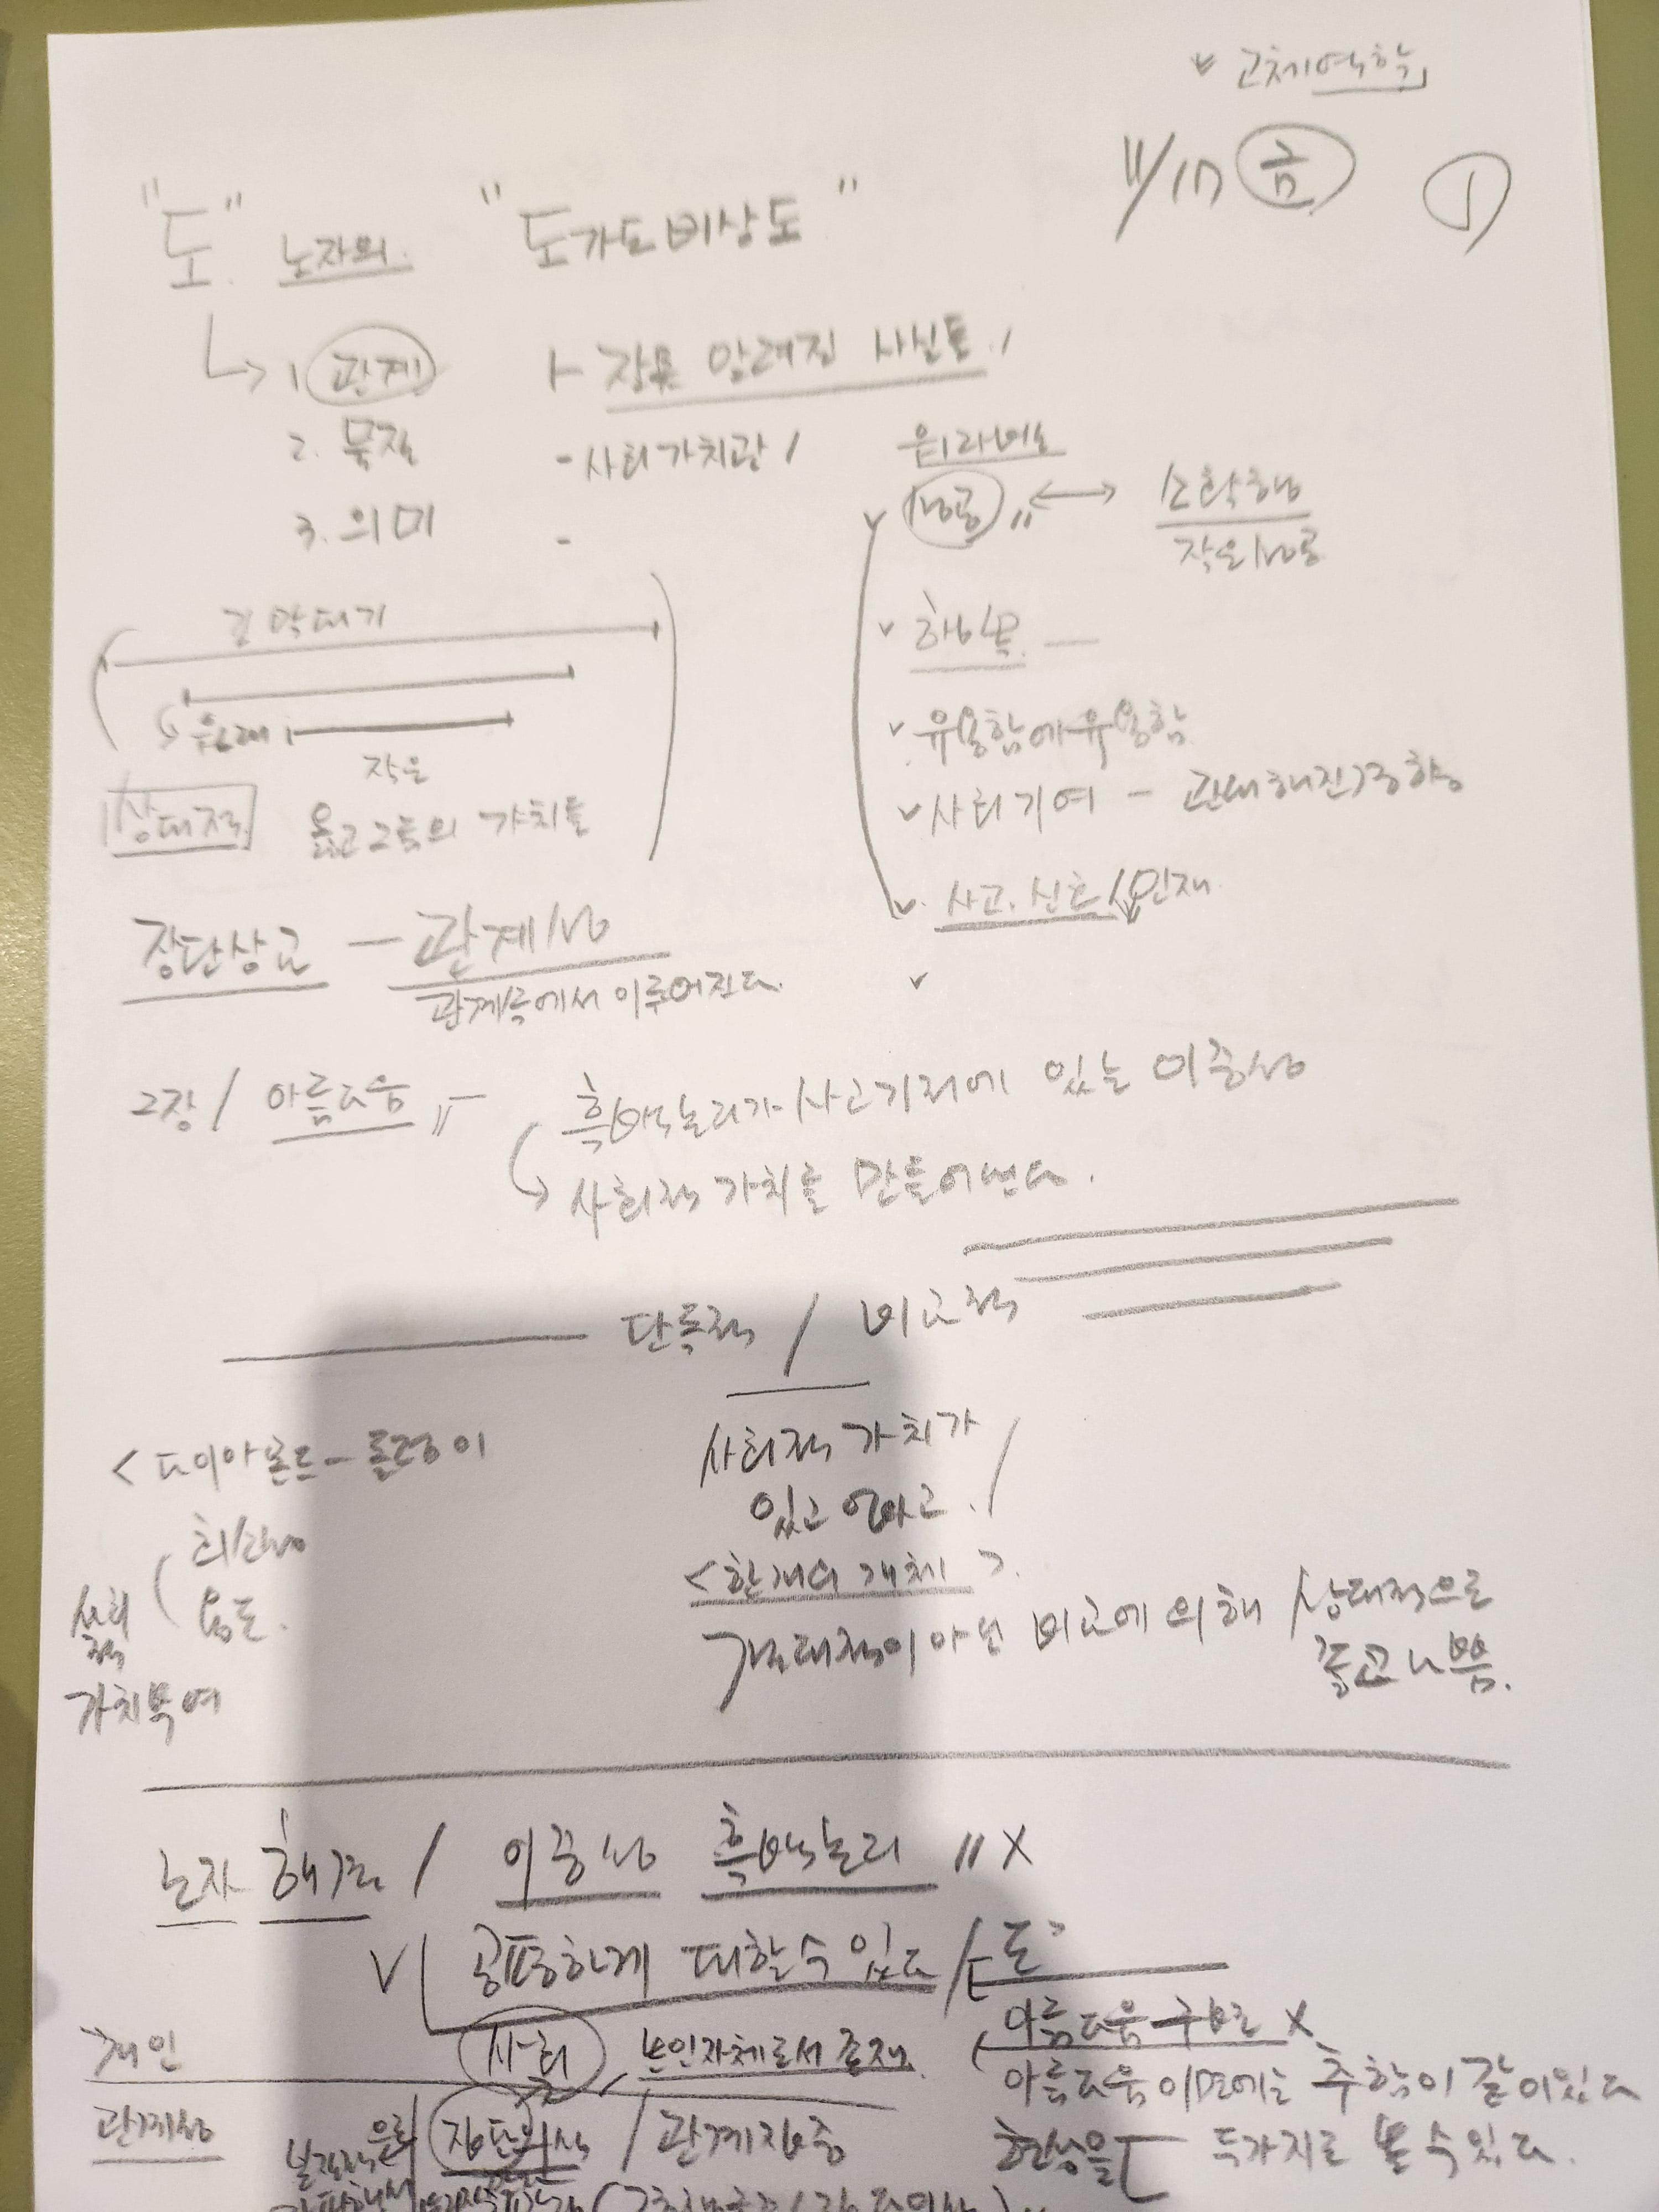 고체역학
11/17 금 ①
"도" 노자의 "도가도비상도"
1 관계 - 잘못 알려진 사실들
2. 물질 - 사회가치관 / 워라벨
3. 의미 -
성공 " ↔ 소확행
작은성공
긴 막대기
행복
원래
작은
유용함에 유용함
상대적 옳고그름의 가치를
사회기여 - 관대해진경향
사고.신호
장단상교 - 관계성
관계속에서 이루어진다.
2장 / 아름다움 " - 흑백논리가 사고기저에 있는 이중성
사회적 가치를 만들어낸다.
단독적 / 비교적
< 다이아몬드 - 돌멩이
사회적 가치가
있고 없고.
희소성
용도.
사회적
가치부여
<한개의 개체>.
절대적이 아닌 비교에 의해 상대적으로
좋고 나쁨.
노자 해결 / 이중성 흑백논리 " X
공평하게 대할수있다 / 도
개인 사회 본인자체로서 존재.
아름다움 구별 X
아름다움 이면에는 추함이 같이있다
관계성
집단의식 / 관계집중
현상을 두가지로 볼 수 있다.